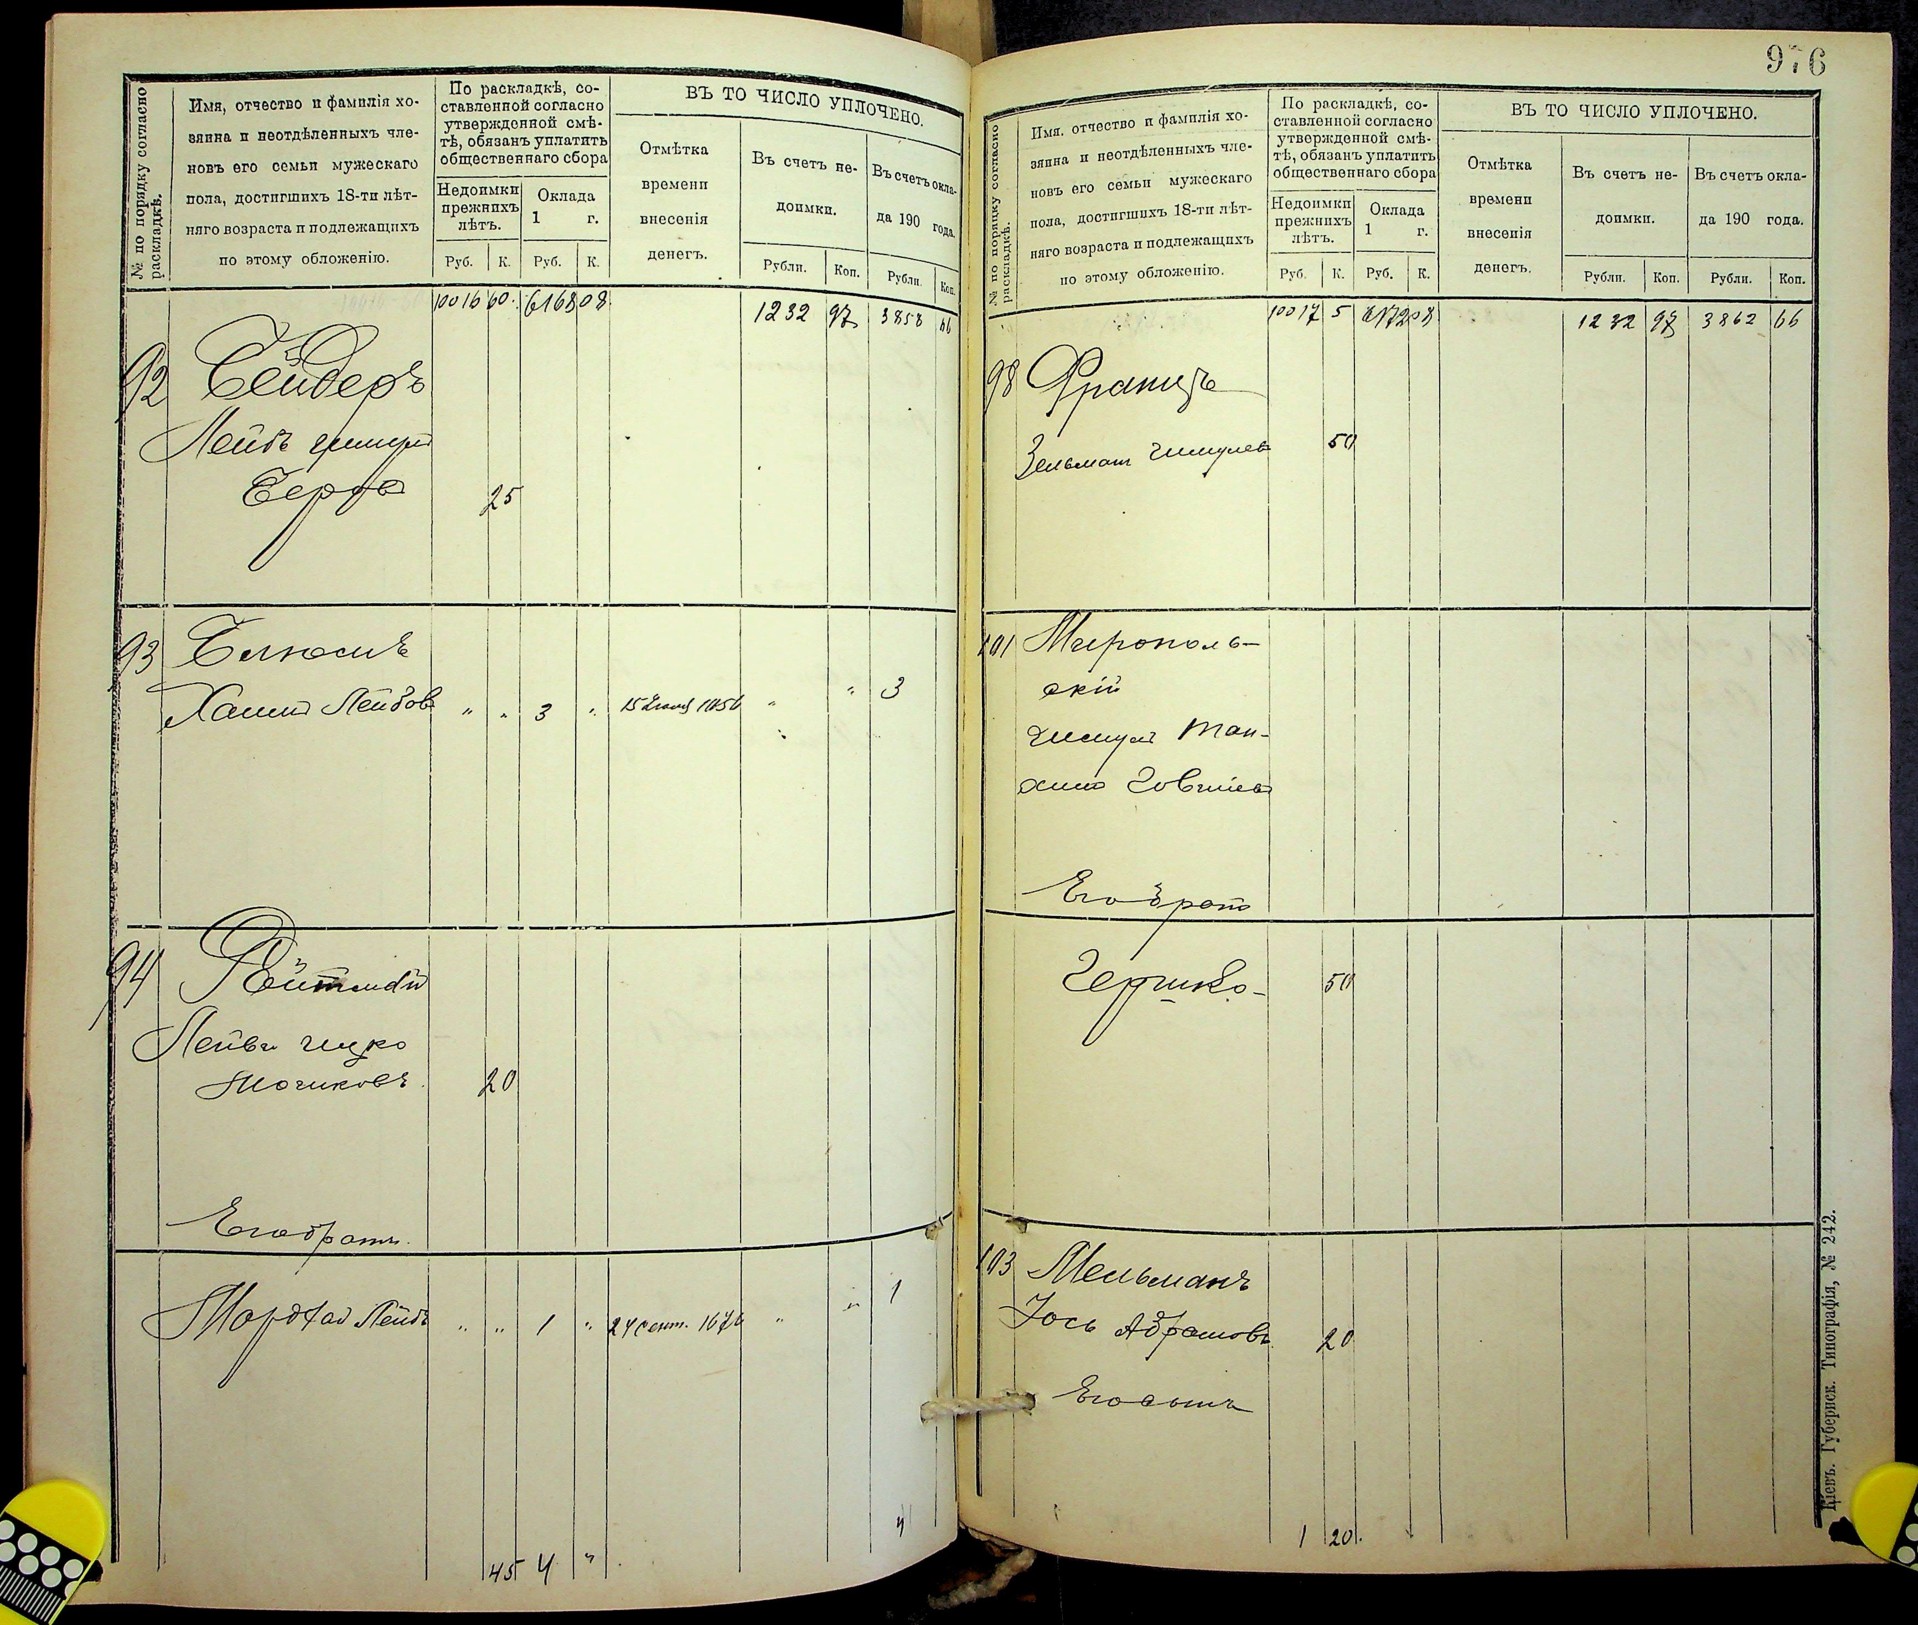 № по порядку согласно
раскладкѣ.
Имя, отчество и фамилія хо-
зяина и неотдѣленныхъ чле-
новъ его семьи мужескаго
пола, достигшихъ 18-ти лѣт-
няго возраста и подлежащихъ
по этому обложенію.
По раскладкѣ, со-
ставленной согласно
утвержденной смѣ-
тѣ, обязанъ уплатить
общественнаго сбора
Недоимки
прежнихъ
лѣтъ.
Оклада
1 г.
Руб. К. Руб. К.
ВЪ ТО ЧИСЛО УПЛОЧЕНО.
Отмѣтка
времени
внесенія
денегъ.
Въ счетъ не-
доимки.
Въ счетъ окла-
да 190 года.
Рубли. Коп. Рубли. Коп.
10016 60 6168 08 1232 97 3858 66
92 Сейдеръ
Лейбъ
Берко
25
93
Лейбов " " 3 " 15 " " 3
94
Лейба Ицко
20
Его братъ
Мордхай Лейбъ " " 1 " 24 сент. 1676 " " 1
45 4 " 4
976
№ по порядку согласно
раскладкѣ.
Имя, отчество и фамилія хо-
зяина и неотдѣленныхъ чле-
новъ его семьи мужескаго
пола, достигшихъ 18-ти лѣт-
няго возраста и подлежащихъ
по этому обложенію.
По раскладкѣ, со-
ставленной согласно
утвержденной смѣ-
тѣ, обязанъ уплатить
общественнаго сбора
Недоимки
прежнихъ
лѣтъ.
Оклада
1 г.
Руб. К. Руб. К.
ВЪ ТО ЧИСЛО УПЛОЧЕНО.
Отмѣтка
времени
внесенія
денегъ.
Въ счетъ не-
доимки.
Въ счетъ окла-
да 190 года.
Рубли. Коп. Рубли. Коп.
10017 5 6172 08 1232 97 3862 66
98 Францъ
Зельман Шмулев 50
101 Мирополь-
скій
Шмулъ Тан-
хим Овшіев
Его братъ
Гершко- 50
103 Мельманъ
Іось Абрамовъ 20
Его сынъ
1 20
Кіевъ. Губернск. Типографія, № 242.